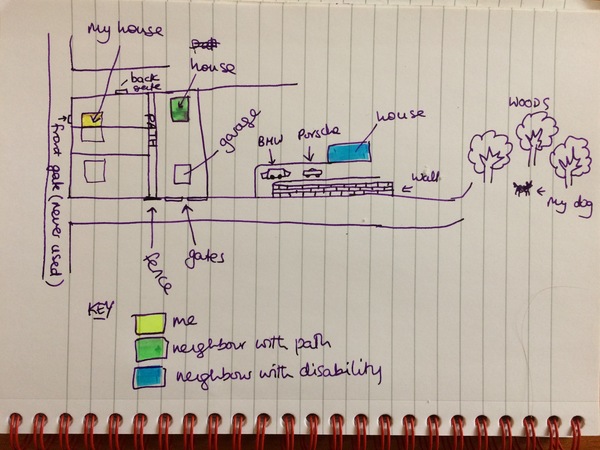 My house
house
back
gate
PATH
garage
BMW
Porsche
house
WOODS
wall
my dog
front gate (never used)
fence
gates
KEY
me
neighbour with path
neighbour with disability